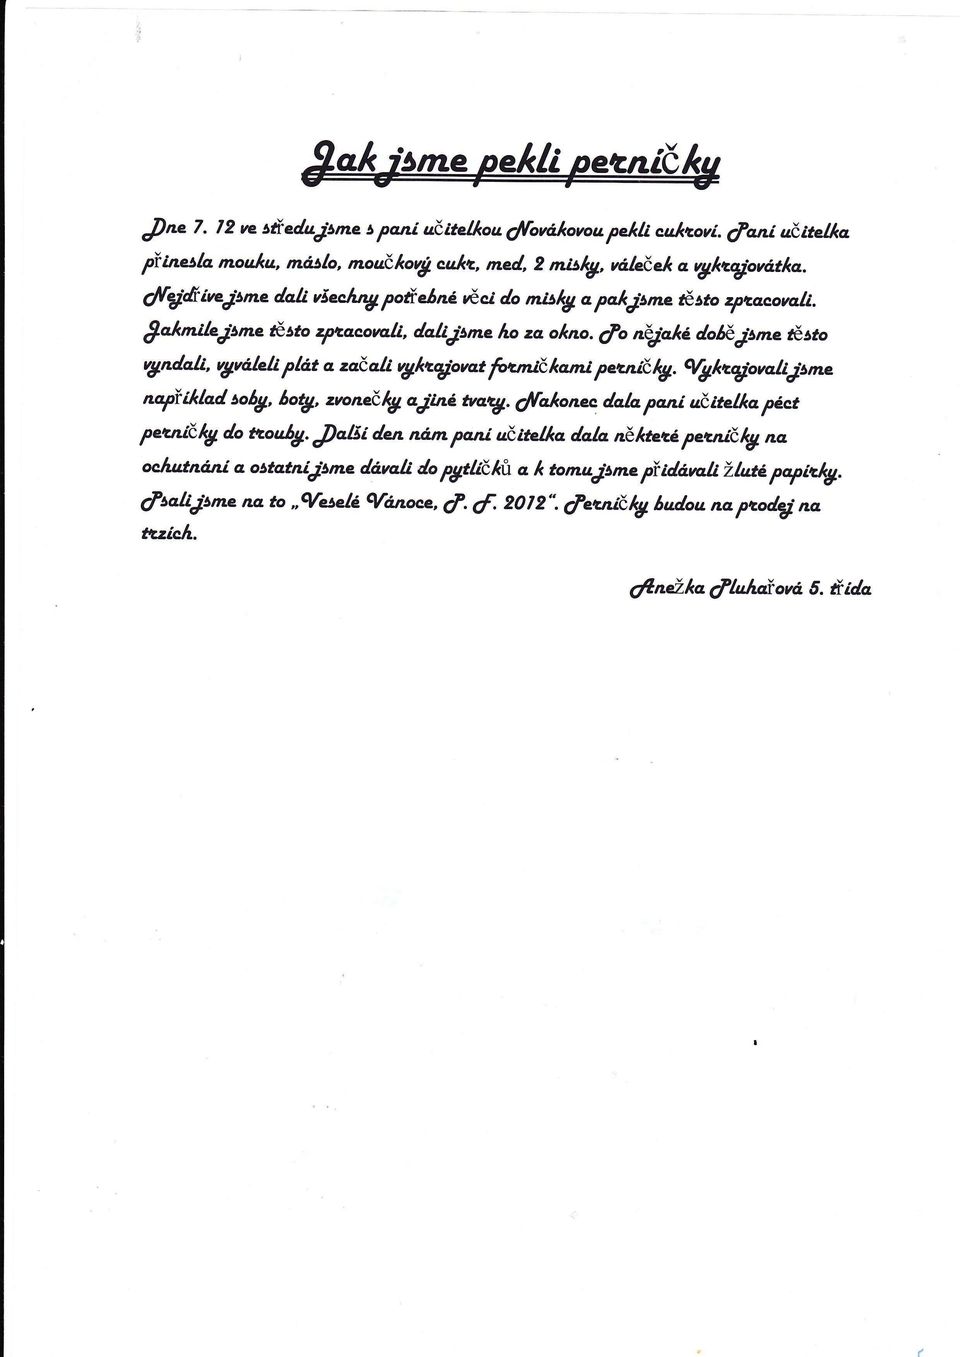 Jak jsme pekli perníčky
Dne 7. 12 ve středu jsme s paní učitelkou Novákovou pekli cukroví. Paní učitelka
přinesla mouku, máslo, moučkový cukr, med, 2 misky, váleček a vykrajovátka.
Nejdříve jsme dali všechny potřebné věci do misky a pak jsme těsto zpracovali.
Jakmile jsme těsto zpracovali, dali jsme ho za okno. Po nějaké době jsme těsto
vyndali, vyváleli plát a začali vykrajovat formičkami perníčky. Vykrajovali jsme
například soby, boty, zvonečky a jiné tvary. Nakonec dala paní učitelka péct
perníčky do trouby. Další den nám paní učitelka dala některé perníčky na
ochutnání a ostatní jsme dávali do pytlíčků a k tomu jsme přidávali žluté papírky.
Psali jsme na to „Veselé Vánoce, P. F. 2012“. Perníčky budou na prodej na
trzích.
Anežka Pluhařová 5. třída